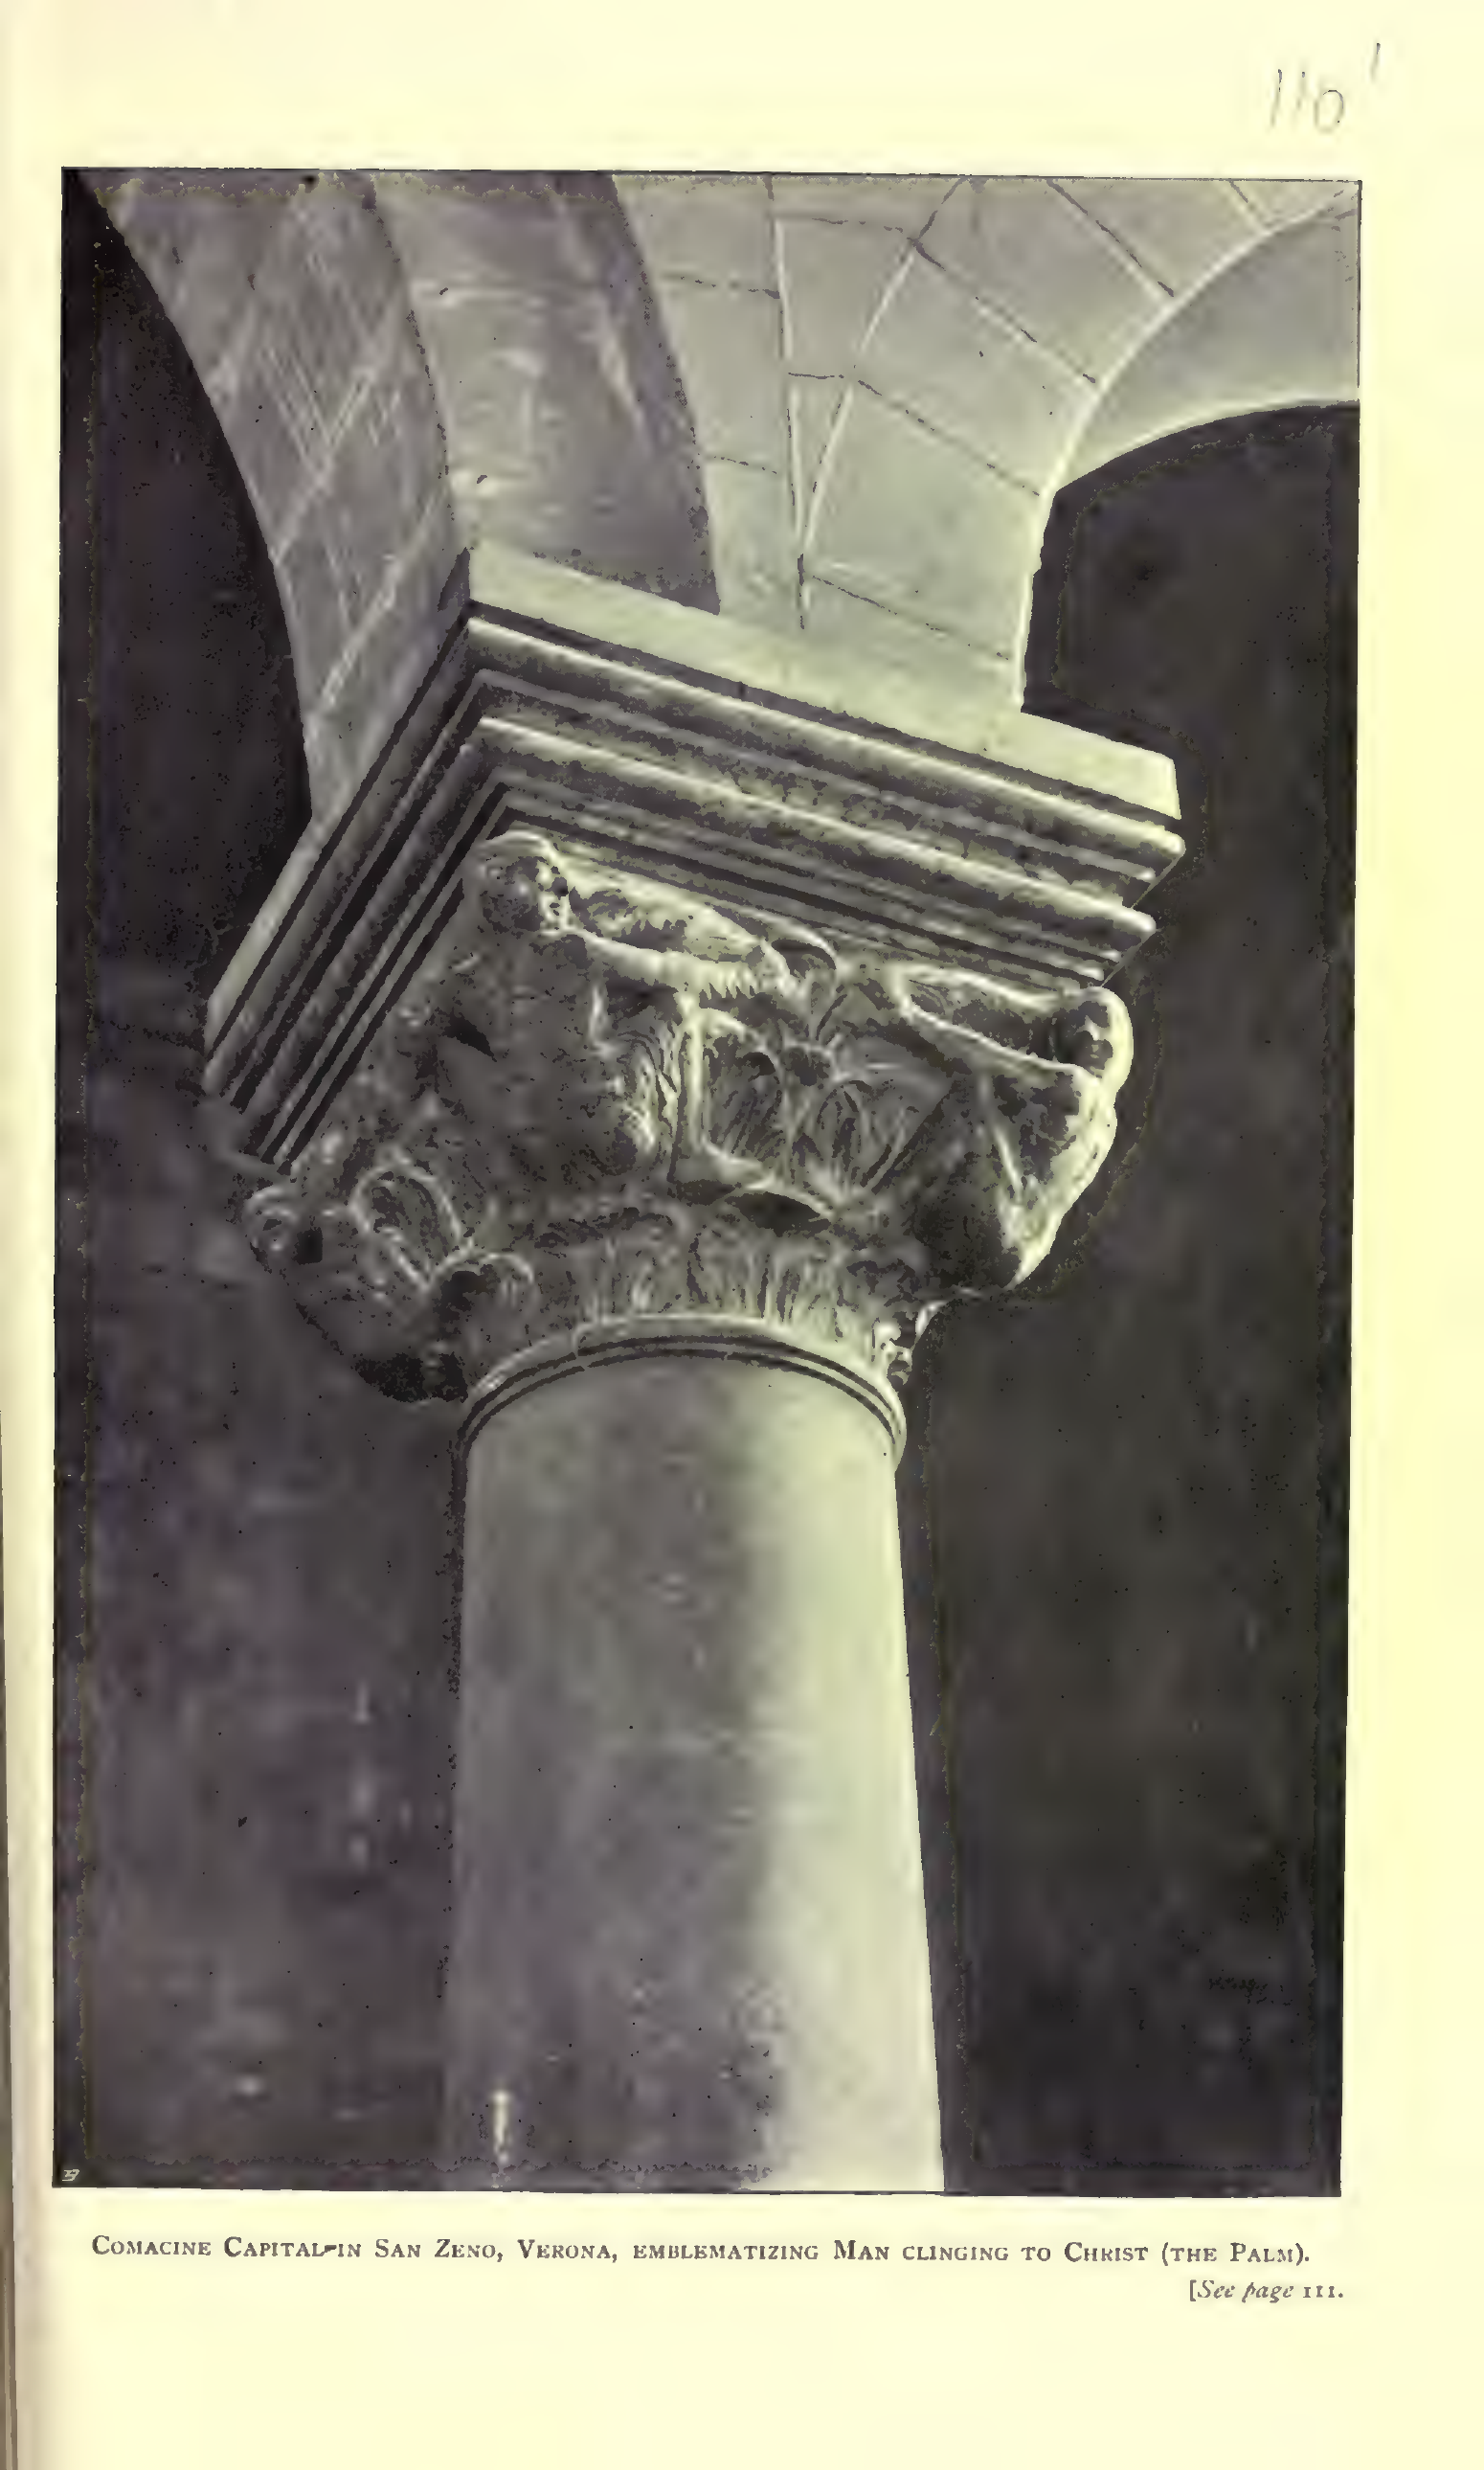 110'
COMACINE CAPITAL-IN SAN ZENO, VERONA, EMBLEMATIZING MAN CLINGING TO CHRIST (THE PALM).
[See page 111.